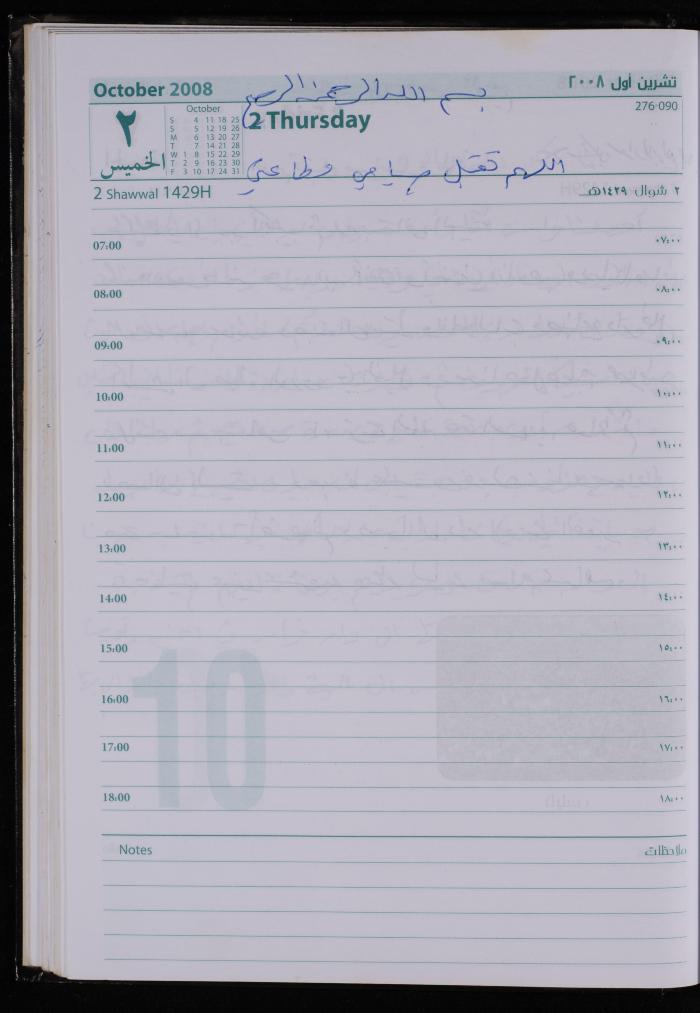 October 2008
تشرين أول ٢٠٠٨
بسم الله الرحمن الرحيم
276-090
2 Thursday
٢
الخميس
October
S 4 11 18 25
S 5 12 19 26
M 6 13 20 27
T 7 14 21 28
W 1 8 15 22 29
T 2 9 16 23 30
F 3 10 17 24 31
اللهم تقبل صيامي وطاعتي
2 Shawwal 1429H
٢ شوال ١٤٢٩هـ
07:00 ٠٧:٠٠
08:00 ٠٨:٠٠
09:00 ٠٩:٠٠
10:00 ١٠:٠٠
11:00 ١١:٠٠
12:00 ١٢:٠٠
13:00 ١٣:٠٠
14:00 ١٤:٠٠
15:00 ١٥:٠٠
16:00 ١٦:٠٠
17:00 ١٧:٠٠
18:00 ١٨:٠٠
Notes ملاحظات